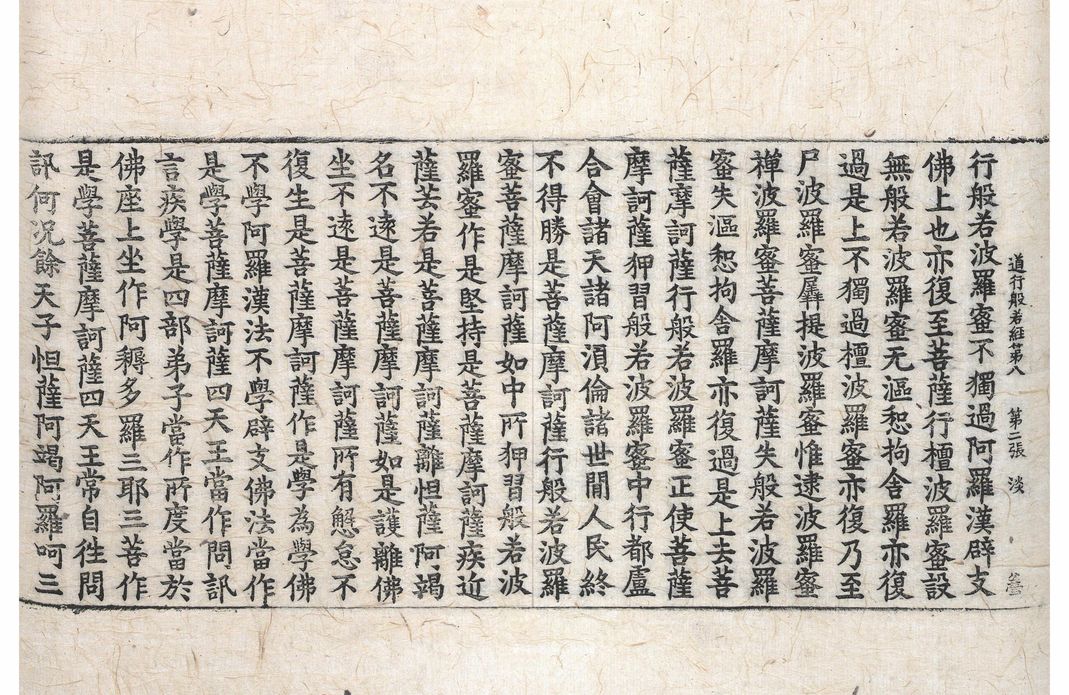 道行般若經第八　第二張　淡
行般若波羅蜜不獨過阿羅漢辟支
佛上也亦復至菩薩行檀波羅蜜設
無般若波羅蜜无漚惒拘舍羅亦復
過是上不獨過檀波羅蜜亦復乃至
尸波羅蜜羼提波羅蜜惟逮波羅蜜
禅波羅蜜菩薩摩訶薩失般若波羅
蜜失漚惒拘舍羅亦復過是上去菩
薩摩訶薩行般若波羅蜜正使菩薩
摩訶薩狎習般若波羅蜜中行都盧
合會諸天諸阿湏倫諸世閒人民終
不得勝是菩薩摩訶薩行般若波羅
蜜菩薩摩訶薩如中所狎習般若波
羅蜜作是堅持是菩薩摩訶薩疾近
薩芸若是菩薩摩訶薩離怛薩阿竭
名不遠是菩薩摩訶薩如是護離佛
坐不遠是菩薩摩訶薩所有懈怠不
復生是菩薩摩訶薩作是學為學佛
不學阿羅漢法不學辟支佛法當作
是學菩薩摩訶薩四天王當作問訊
言疾學是四部弟子當作所度當於
佛座上坐作阿耨多羅三耶三菩作
是學菩薩摩訶薩四天王常自往問
訊何况餘天子怛薩阿竭阿羅呵三